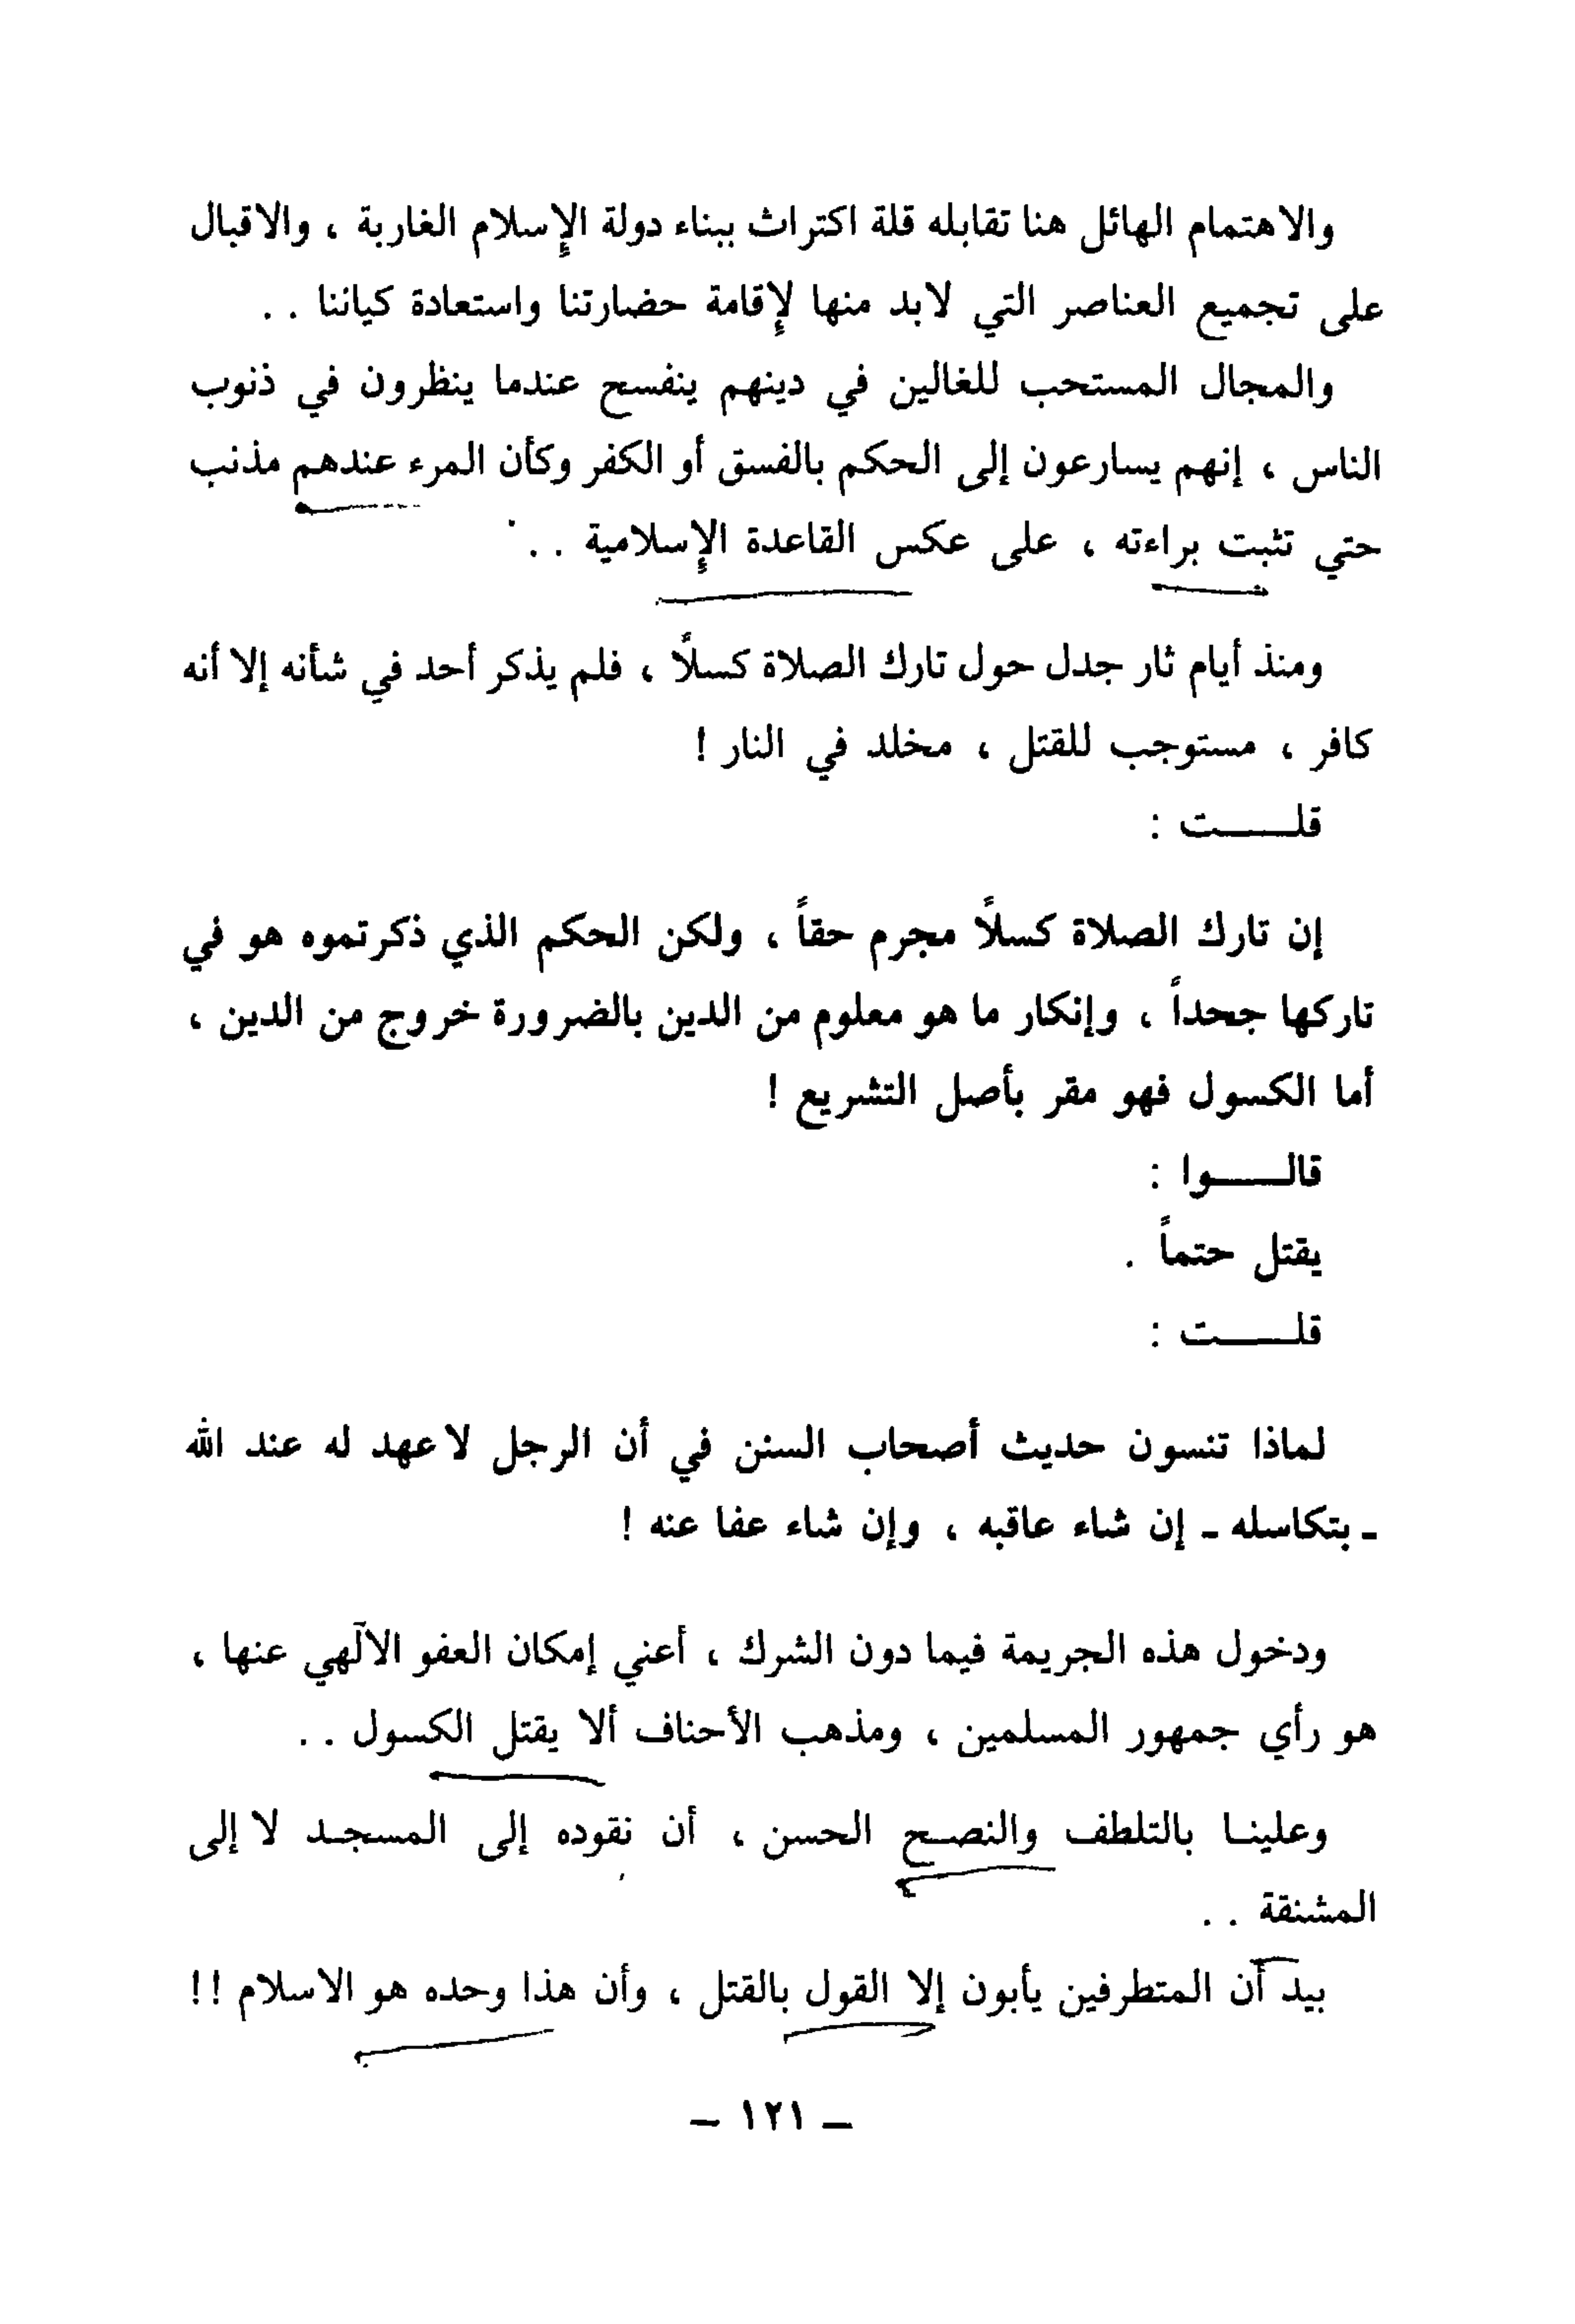 والاهتمام الهائل هنا تقابله قلة اكتراث ببناء دولة الإسلام الغاربة ، والاقبال
على تجميع العناصر التي لابد منها لإقامة حضارتنا واستعادة كياننا . .
والمجال المستحب للغالين في دينهم ينفسح عندما ينظرون في ذنوب
الناس ، إنهم يسارعون إلى الحكم بالفسق أو الكفر وكأن المرء عندهم مذنب
حتي تثبت براءته ، على عكس القاعدة الإسلامية . .
ومنذ أيام ثار جدل حول تارك الصلاة كسلاً ، فلم يذكر أحد في شأنه إلا أنه
كافر ، مستوجب للقتل ، مخلد في النار !
قلـــــت :
إن تارك الصلاة كسلاً مجرم حقاً ، ولكن الحكم الذي ذكرتموه هو في
تاركها جحداً ، وإنكار ما هو معلوم من الدين بالضرورة خروج من الدين ،
أما الكسول فهو مقر بأصل التشريع !
قالـــــوا :
يقتل حتماً .
قلـــــت :
لماذا تنسون حديث أصحاب السنن في أن الرجل لا عهد له عند الله
ـ بتكاسله ـ إن شاء عاقبه ، وإن شاء عفا عنه !
ودخول هذه الجريمة فيما دون الشرك ، أعني إمكان العفو الآلهي عنها ،
هو رأي جمهور المسلمين ، ومذهب الأحناف ألا يقتل الكسول . .
وعلينـا بالتلطف والنصـح الحسن ، أن نقوده إلى المسجـد لا إلى
المشنقة . .
بيد أن المتطرفين يأبون إلا القول بالقتل ، وأن هذا وحده هو الاسلام !!
ـ ١٢١ ـ